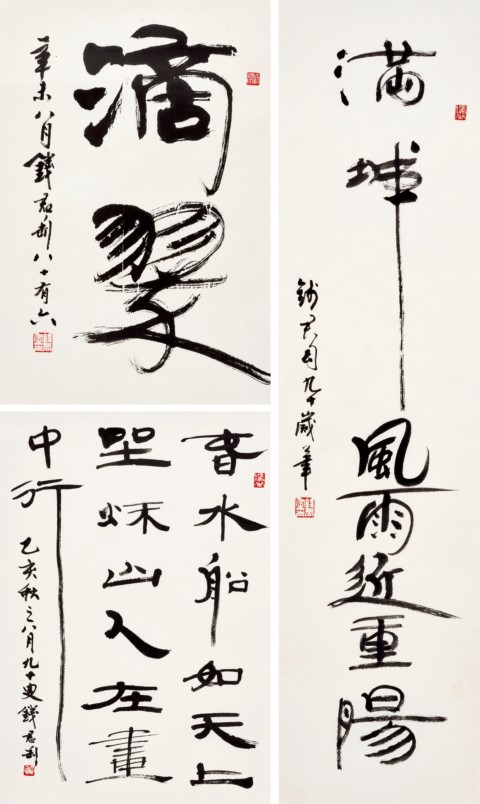 滴翠
辛未八月錢君匋八十有六
滿城風雨近重陽
錢君匋九十歲筆
春水船如天上
坐秌山人在畫
中行
乙亥秋之八月九十叟錢君匋